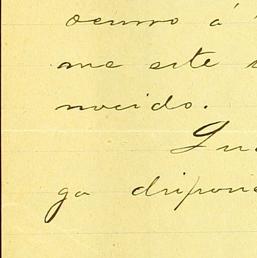 ocurro á
me este
nocido.
ga dispon